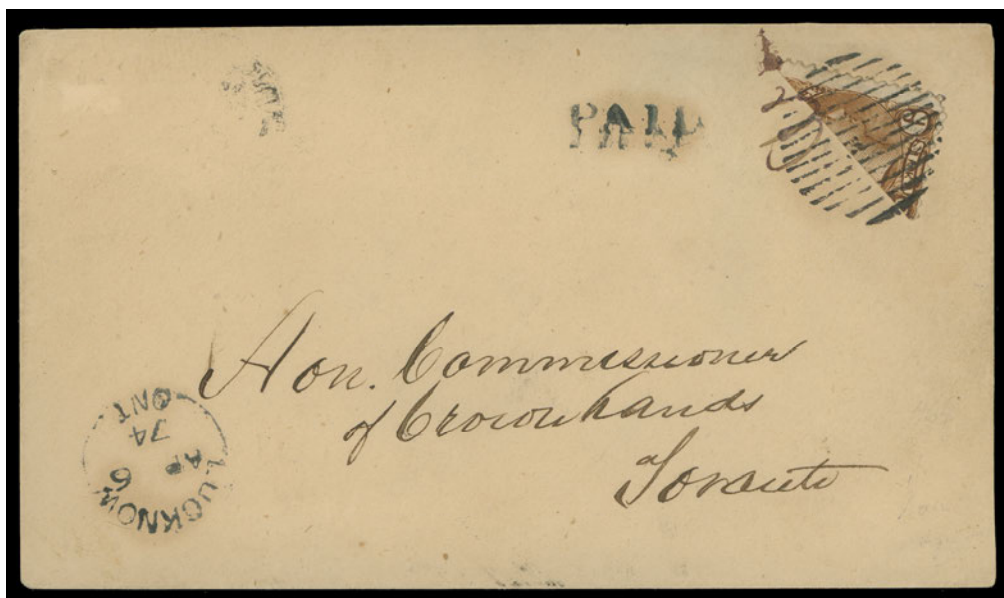 PAID
Hon. Commissioner
of Crown Lands
Toronto
LUCKNOW
AP 6
74
ONT